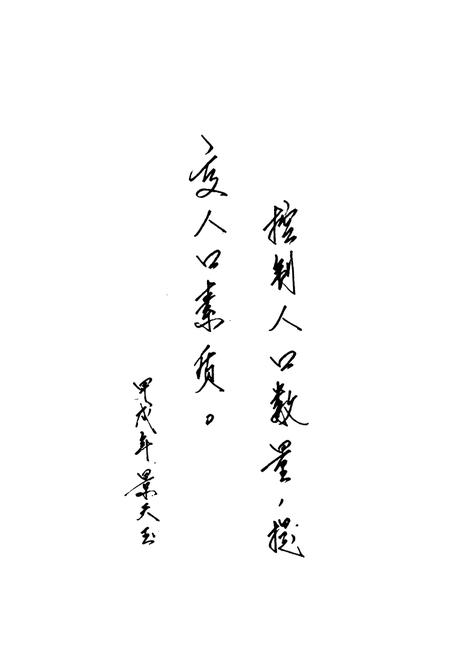 控制人口数量，提
高人口素质。
甲戌年 景天玉